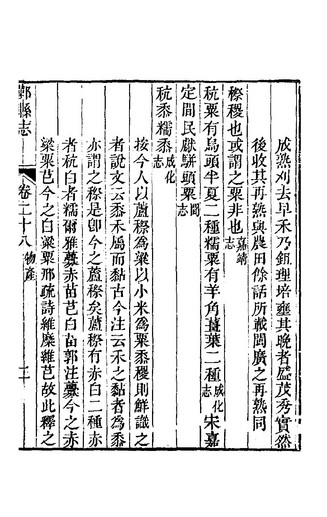 成熟刈去早禾乃鉏理培壅其晚者盛茂秀實然
後收其再熟與農田餘話所載閩廣之再熟同
穄稷也或謂之粟非也嘉靖志
秔粟有烏頭半夏二種糯粟有羊角薑葉二種成化志宋嘉
定間民獻駢頭粟聞志
秔黍糯黍成化志
按今人以蘆穄為粱以小米為粟黍稷則鮮識之
者說文云黍禾屬而黏古今注云禾之黏者為黍
亦謂之穄是卽今之蘆穄矣蘆穄有赤白二種赤
者秔白者糯爾雅虋赤苗芑白苗郭注虋今之赤
粱粟芑今之白粱粟邢疏詩維穈維芑故此釋之
鄞縣志
卷二十八
物產